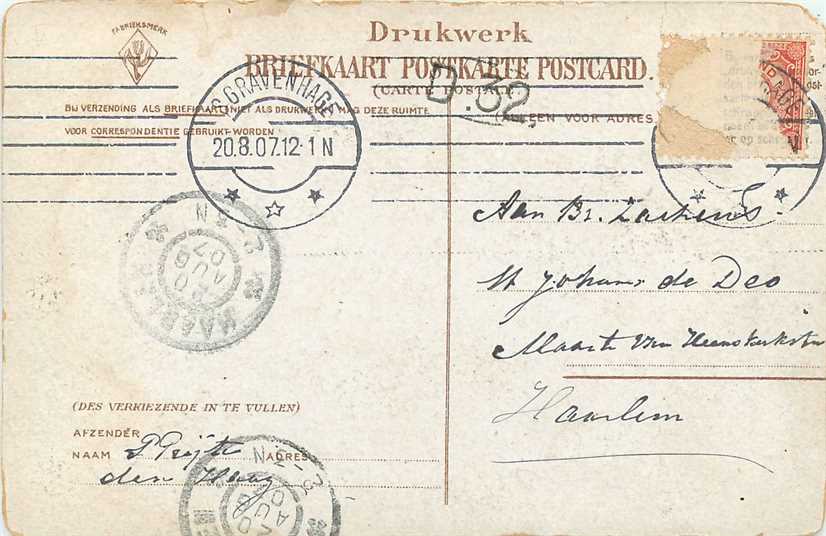 FABRIEKSMERK
Drukwerk
BRIEFKAART POSTKARTE POSTCARD.
(CARTE POSTALE)
BIJ VERZENDING ALS BRIEFKAART NIET ALS DRUKWERK MAG DEZE RUIMTE
VOOR CORRESPONDENTIE GEBRUIKT WORDEN
(ALLEEN VOOR ADRES
D.32
'S GRAVENHAGE
20.8.07.12-1 N
HAARLEM
20 AUG 07
Aan Br. Zacheus.
St Johans de Deo
Maarte van Heemskerkstr
Haarlem
(DES VERKIEZENDE IN TE VULLEN)
AFZENDER
NAAM P. ADRES
den Haag
2-3 N
20
AUG